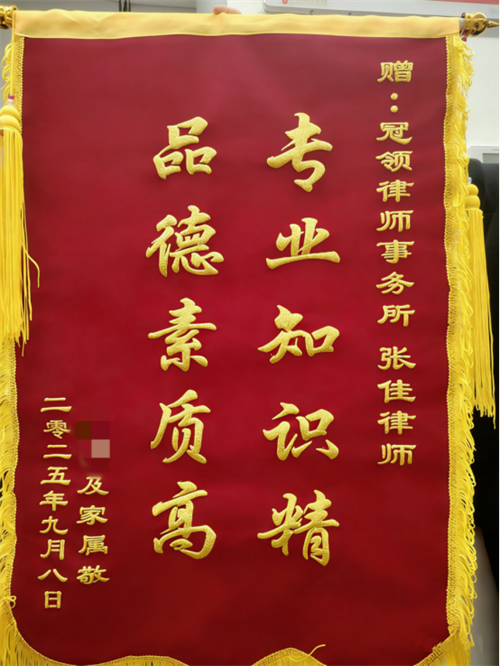 赠：冠领律师事务所 张佳律师
专业知识精
品德素质高
及家属敬
二零二五年九月八日